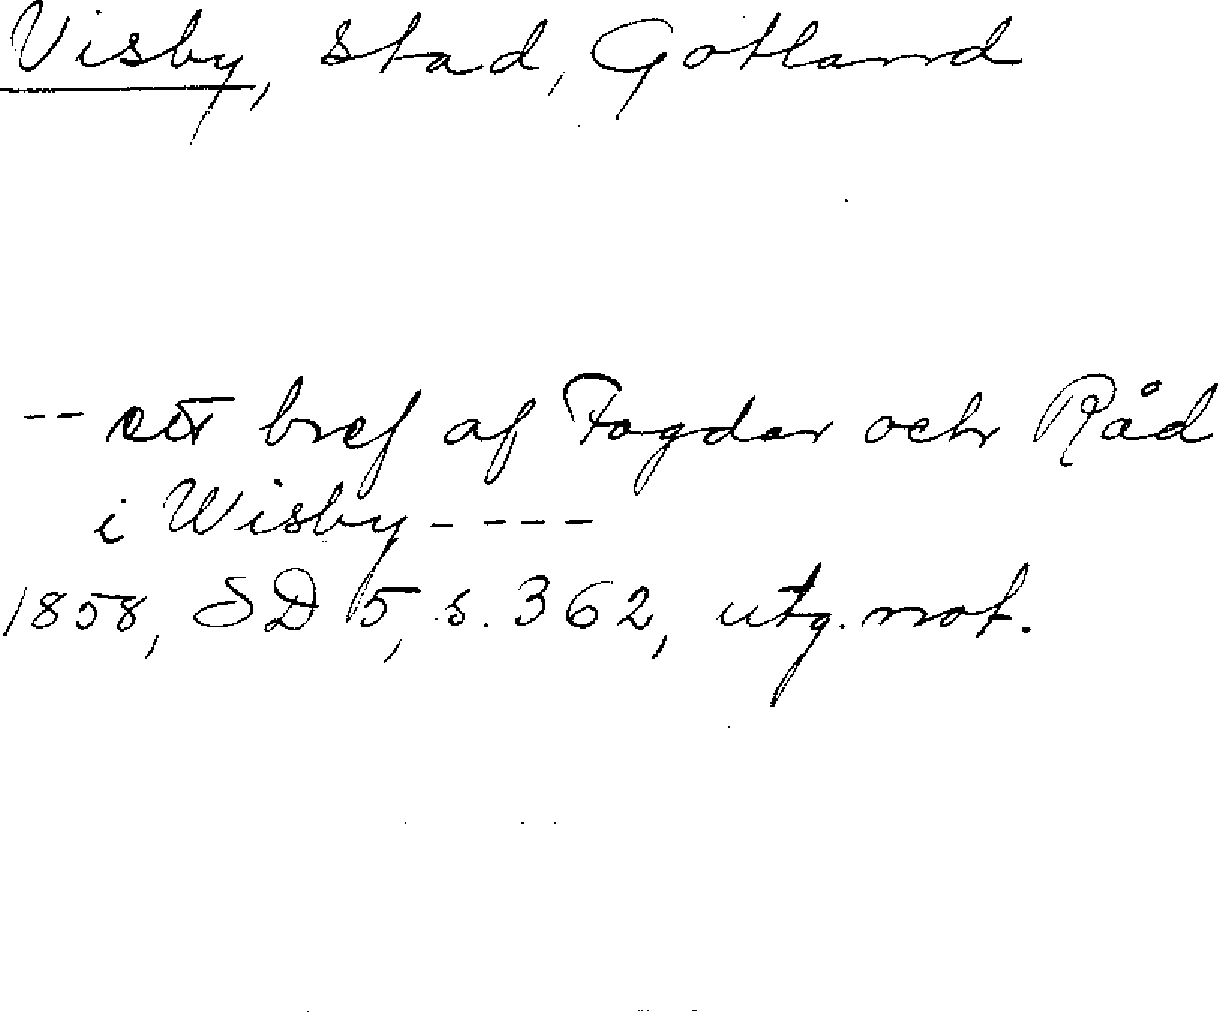 Visby, stad, Gotland
-- ett bref af Fogdar och Råd
i Wisby ----
1858, SD 5, s. 362, utg. not.